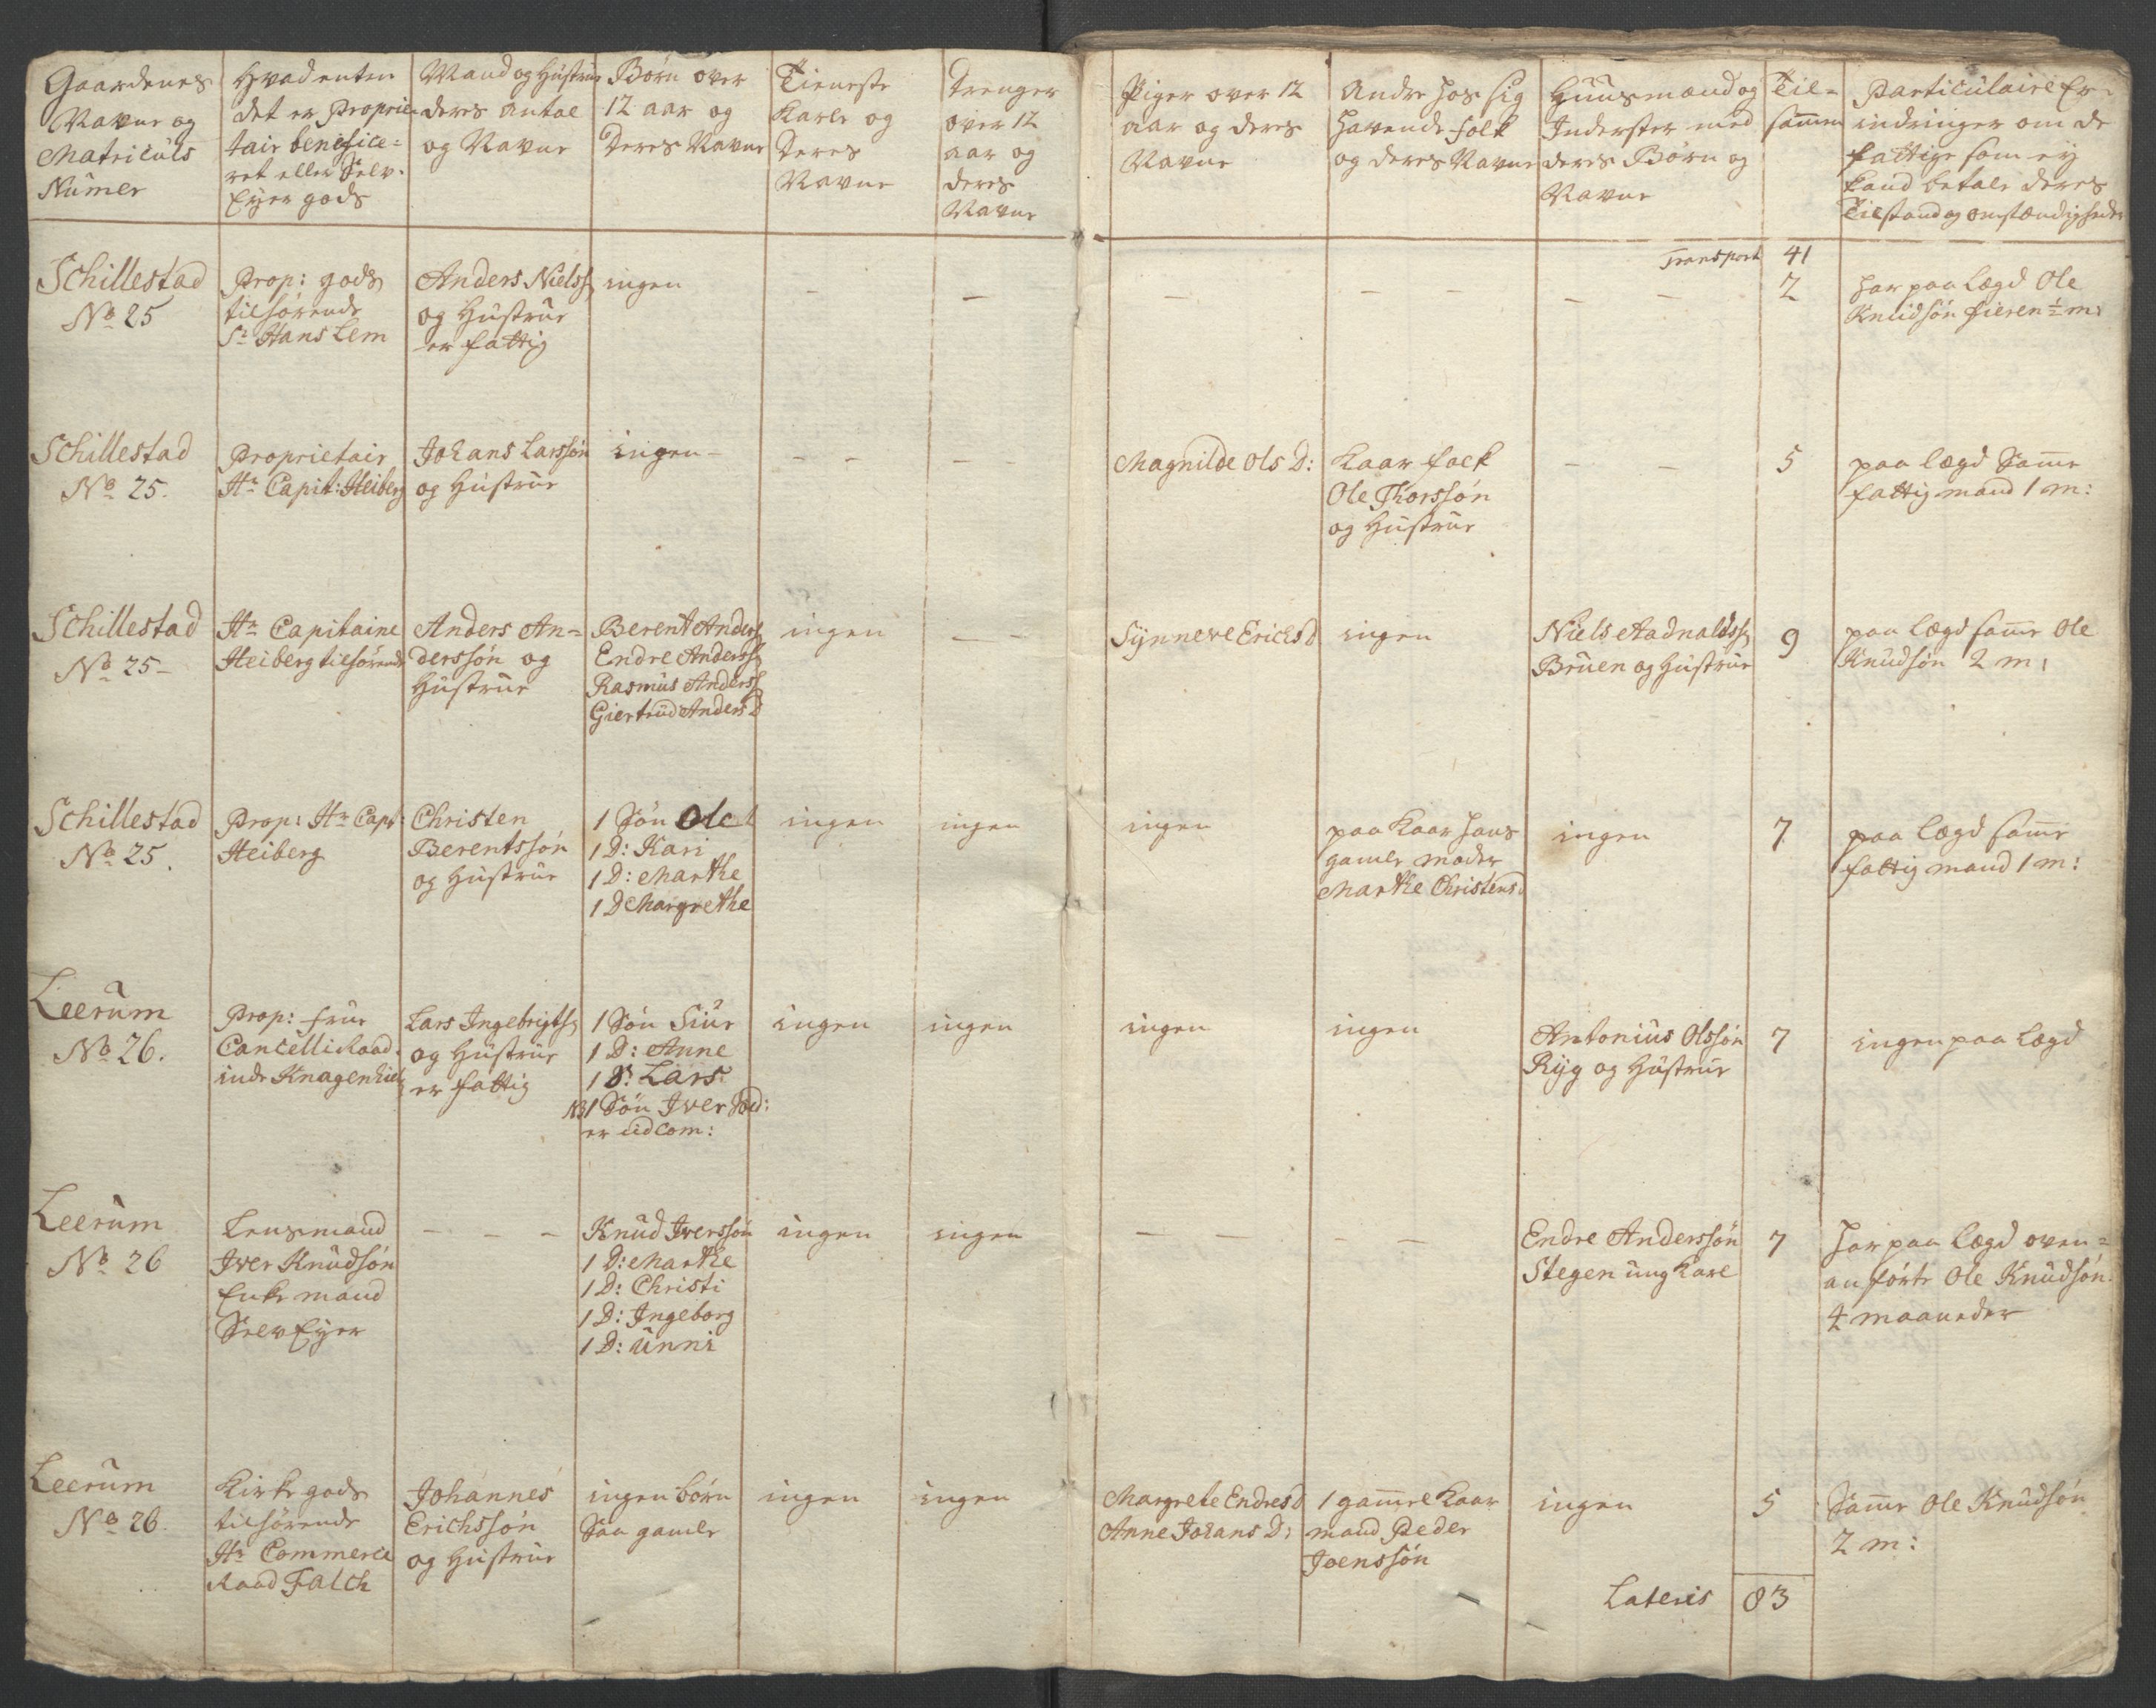 Gaardenes
Navne og
Matriculs
Numer
Hvad enten
det er Proprie-
tair benefice-
ret eller Selv-
Eyer gods
Mand og Hustrue
deres antal
og Navne
Børn over
12 aar og
Deres Navne
Tieneste
Karle og
Deres
Navne
Drenger
over 12
aar og
deres
Navne
Piger over 12
aar og deres
Navne
Andre hos sig
havende folk
og deres Navne
Huusmænd og
Inderster med
deres Børn og
Navne
Til-
samen
Particulaire Er-
indringer om de
fattige som ey
kand betale deres
Tilstand og omstændigheder
Transport 41
Schillestad
No 25
Prop: gods
tilhørende
Sr Hans Lem
Anders Nielss
og Hustrue
er fattig
ingen
–
–
–
– –
– –
2
har paa Lægd Ole
Knudsøn fieren ½ m:
Schillestad
No 25.
Proprietair
Hr Capit: Heiberg
Johans Larssøn
og Hustrue
ingen –
– –
– –
Magnilde Ols D:
Kaar folk
Ole Thorssøn
og Hustrue
– –
5
paa Lægd Same
fattig mand 1 m:
Schillestad
No 25 –
Hr Capitaine
Heiberg tilhørende
Anders An-
derssøn og
Hustrue
Berent Anderss
Endre Anderss
Rasmus Anderss
Giertrud Anders D
ingen
– –
Synneve Erichs D
ingen
Niels Aadnaldss
Bruen og Hustrue
9
paa Lægd same Ole
Knudsøn 2 m:
Schillestad
No 25.
Prop: Hr Capt:
Heiberg
Christen
Berentssøn
og Hustrue
1 Søn Ole
1 D: Kari
1 D: Marthe
1 D Margrethe
ingen
ingen
ingen
paa Kaar hans
gamle moder
Marthe Christens D
ingen
7
paa Lægd same
fattig mand 1 m:
Leerum
No 26.
Prop: frue
Cancelliraad-
inde Knagenhielm
Lars Ingebrigts
og Hustrue
er fattig
1 Søn Siur
1 D: Anne
1 S: Lars
NB 1 Søn Iver Sold:
er udcom:
ingen
ingen
ingen
ingen
Antonius Olssøn
Ryg og Hustrue
7
ingen paa Lægd
Leerum
No 26
Lensmand
Iver Knudsøn
Enke mand
Selv Eyer
– – –
Knud Iverssøn
1 D: Marthe
1 D: Christi
1 D: Ingeborg
1 D: Unni
ingen
ingen
– –
– –
Endre Anderssøn
Stegen ung Karl
7
har paa Lægd oven-
anførte Ole Knudsøn
4 maaneder
Leerum
No 26.
Kirke gods
tilhørende
Hr Commerce
Raad Falch
Johannes
Erichssøn
og Hustrue
ingen børn
Saa gamle
ingen
ingen
Margrete Endres D
Anne Johans D:
1 gammel Kaar
mand Peder
Joenssøn
ingen
5
Same Ole Knudsøn
2 m:
Lateris 83